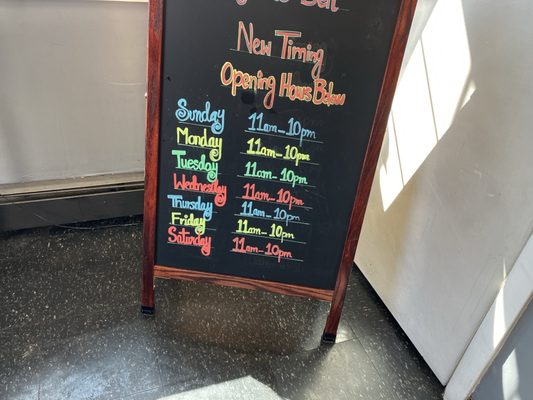 Deli
New Timing
Opening Hours Below
Sunday 11am - 10pm
Monday 11am - 10pm
Tuesday 11am - 10pm
Wednesday 11am - 10pm
Thursday 11am - 10pm
Friday 11am - 10pm
Saturday 11am - 10pm